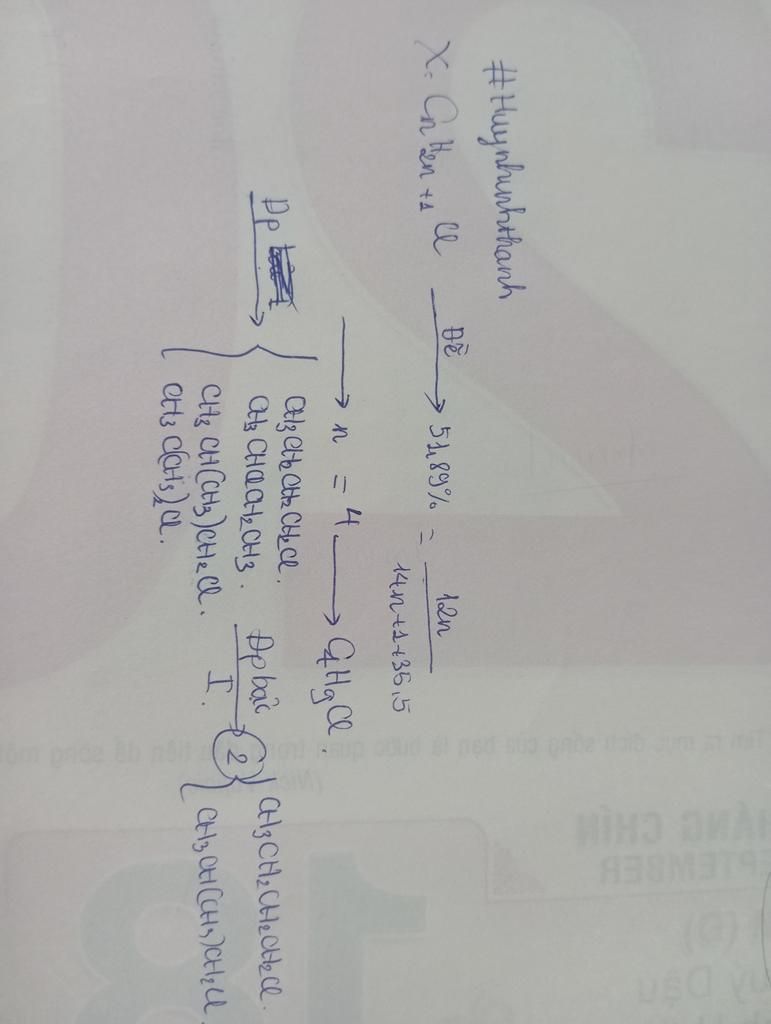 #Huynhhnhthanh
X: CnH2n+1Cl —Đề→ 51,89% = 12n / 14n+1+35,5
→ n = 4 → C4H9Cl
Đp → { CH3CH2CH2CH2Cl.
CH3CHClCH2CH3.
CH3CH(CH3)CH2Cl.
CH3C(CH3)2Cl.
Đp bậc I. → 2 { CH3CH2CH2CH2Cl.
CH3CH(CH3)CH2Cl.
Tìm ra mục đích sống của bạn là bước quan trọng đầu tiên để sống một
(Nick
THÁNG CHÍN
SEPTEMBER
18
(Đ)
Quý Dậu